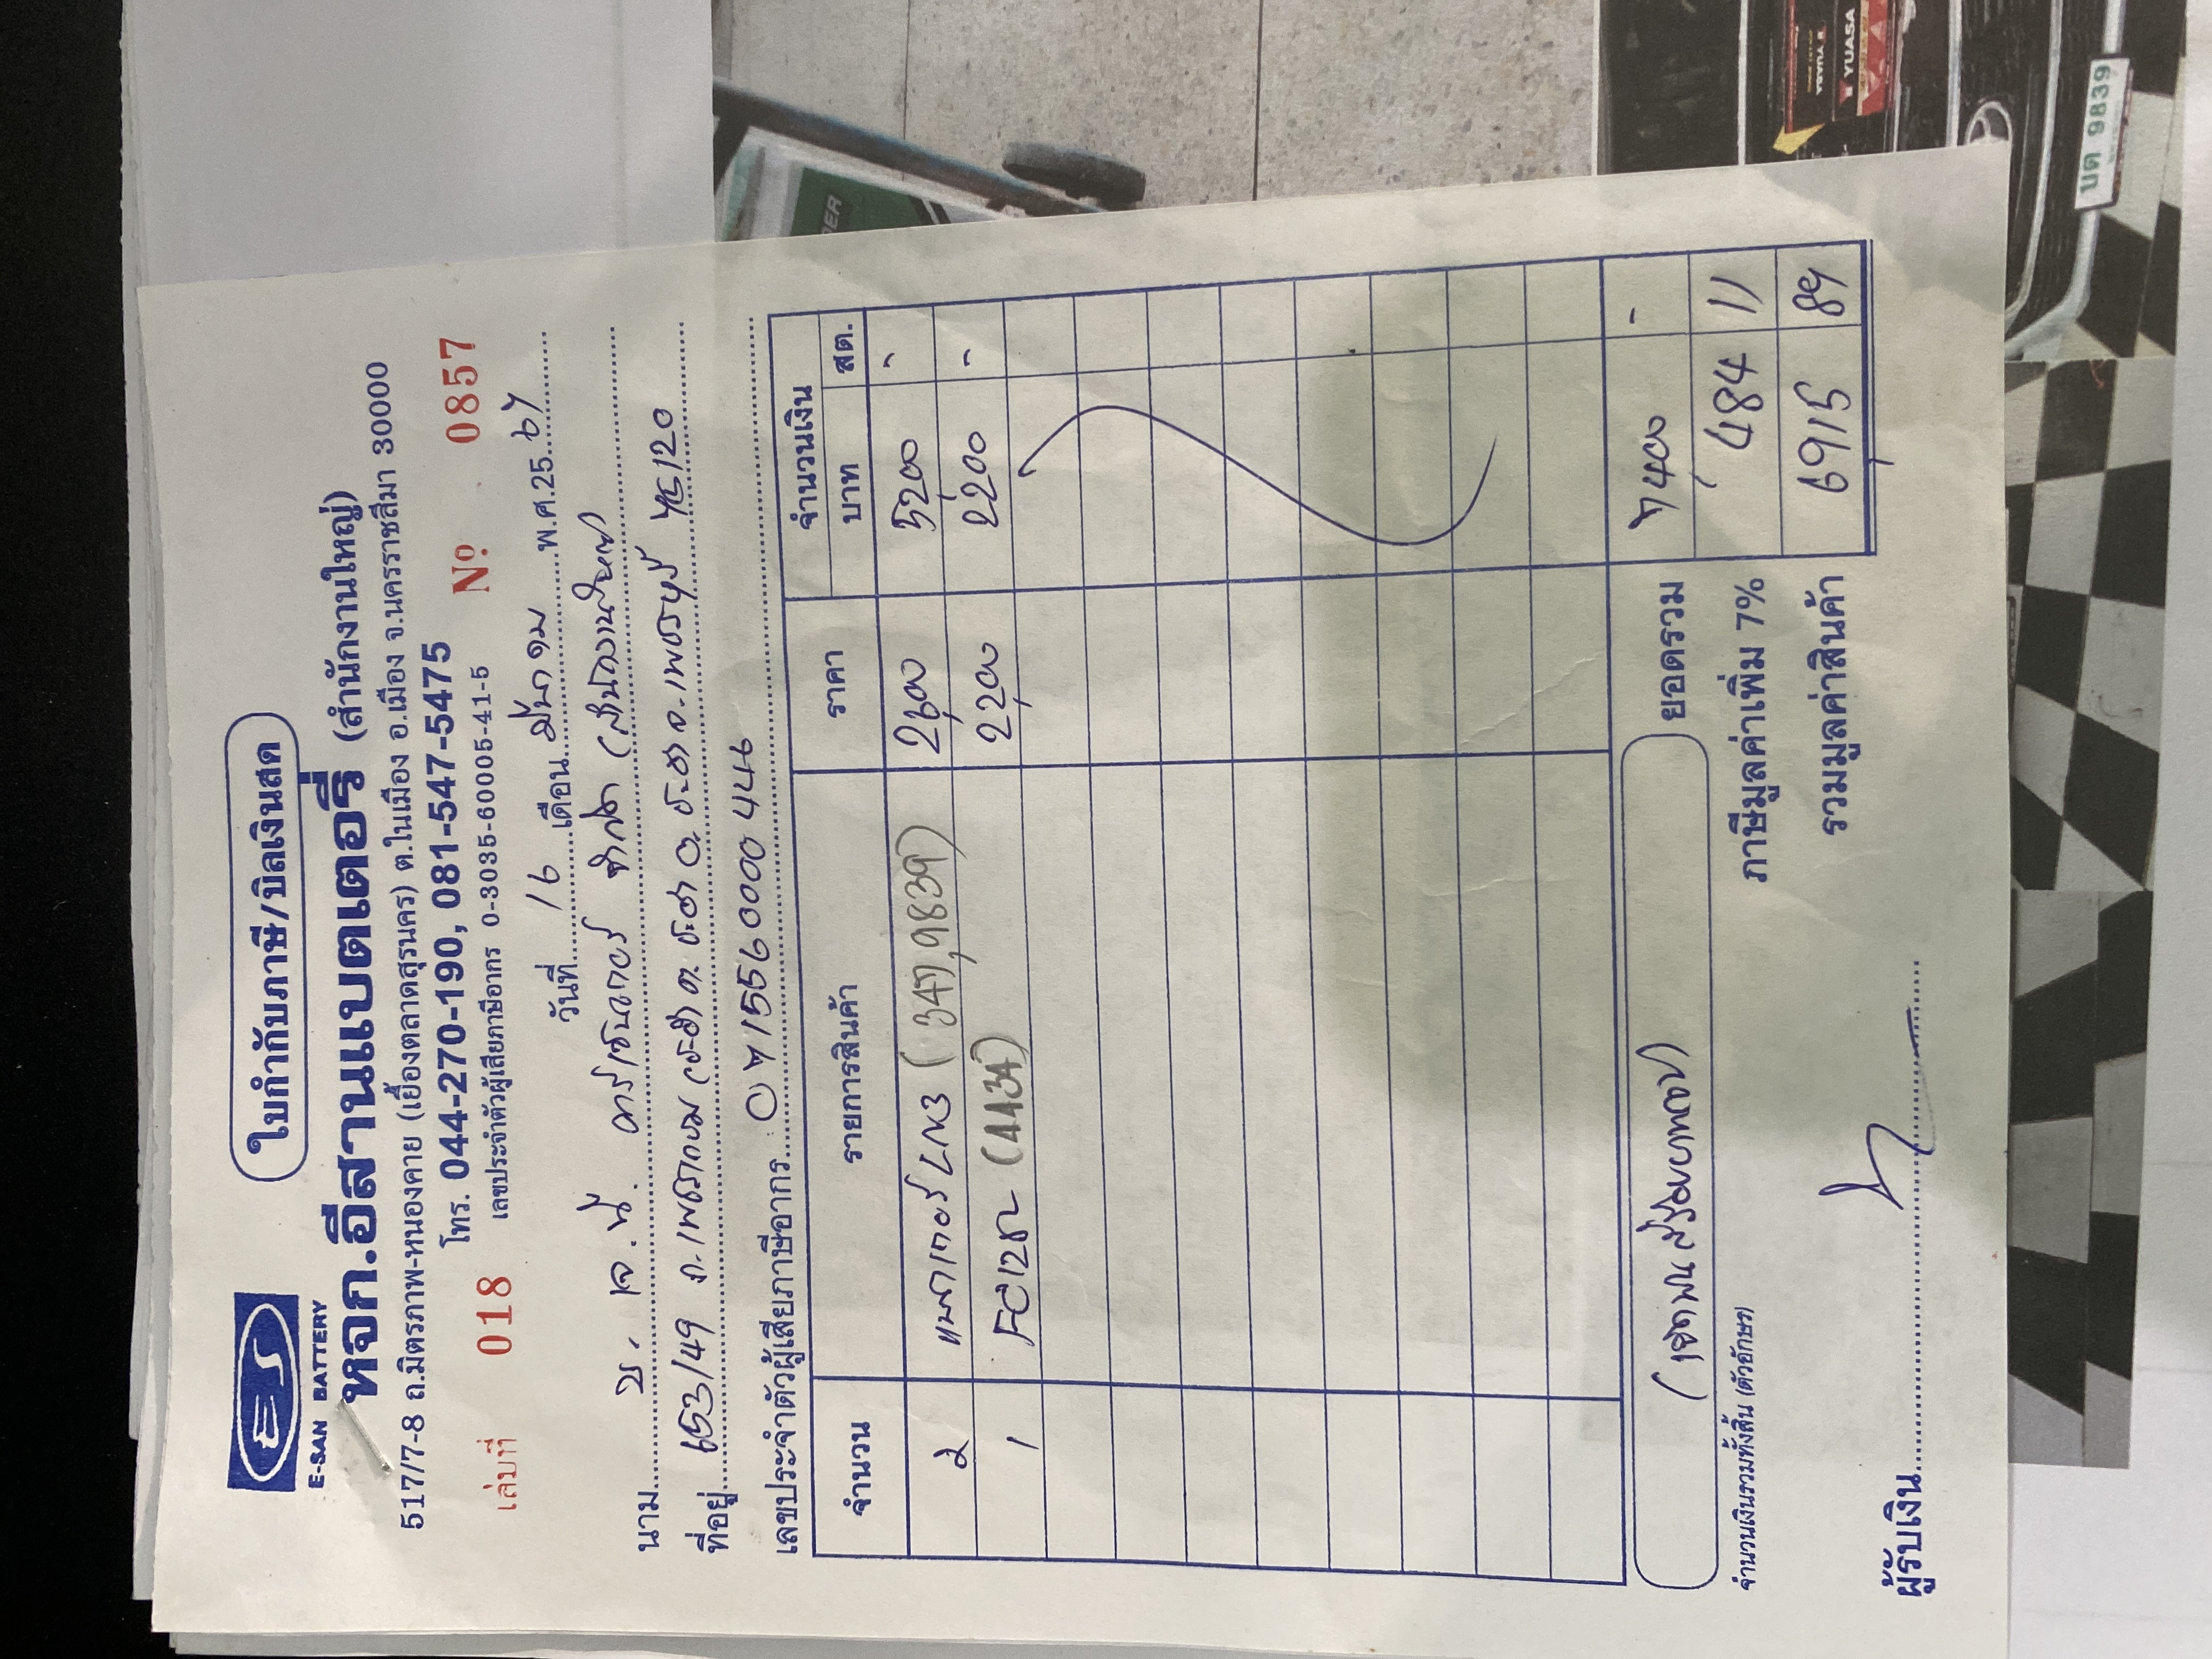 ใบกำกับภาษี/บิลเงินสด
E-SAN BATTERY
หจก.อีสานแบตเตอรี่ (สำนักงานใหญ่)
517/7-8 ถ.มิตรภาพ-หนองคาย (เยื้องตลาดสุรนคร) ต.ในเมือง อ.เมือง จ.นครราชสีมา 30000
โทร. 044-270-190, 081-547-5475
เล่มที่ 018 เลขประจำตัวผู้เสียภาษีอากร 0-3035-60005-41-5 Nº 0857
วันที่ 16 เดือน มีนาคม พ.ศ.25 67
นาม บ. เจ.นี. (สำนักงานใหญ่)
ที่อยู่ 653/49 ถ.เพชรเกษม ต. ชะอำ อ. ชะอำ จ.เพชรบุรี 76120
เลขประจำตัวผู้เสียภาษีอากร 0715560000446
จำนวน รายการสินค้า ราคา จำนวนเงิน
บาท สต.
2 (347,9839) 2,600 5,200 -
1 (4434) 2,200 2,200 -
ยอดรวม 7,400 -
(เจ็ดพันสี่ร้อยบาทถ้วน) ภาษีมูลค่าเพิ่ม 7% 484 11
จำนวนเงินรวมทั้งสิ้น (ตัวอักษร) รวมมูลค่าสินค้า 6,915 89
ผู้รับเงิน
YUASA
YUASA
บด 9839